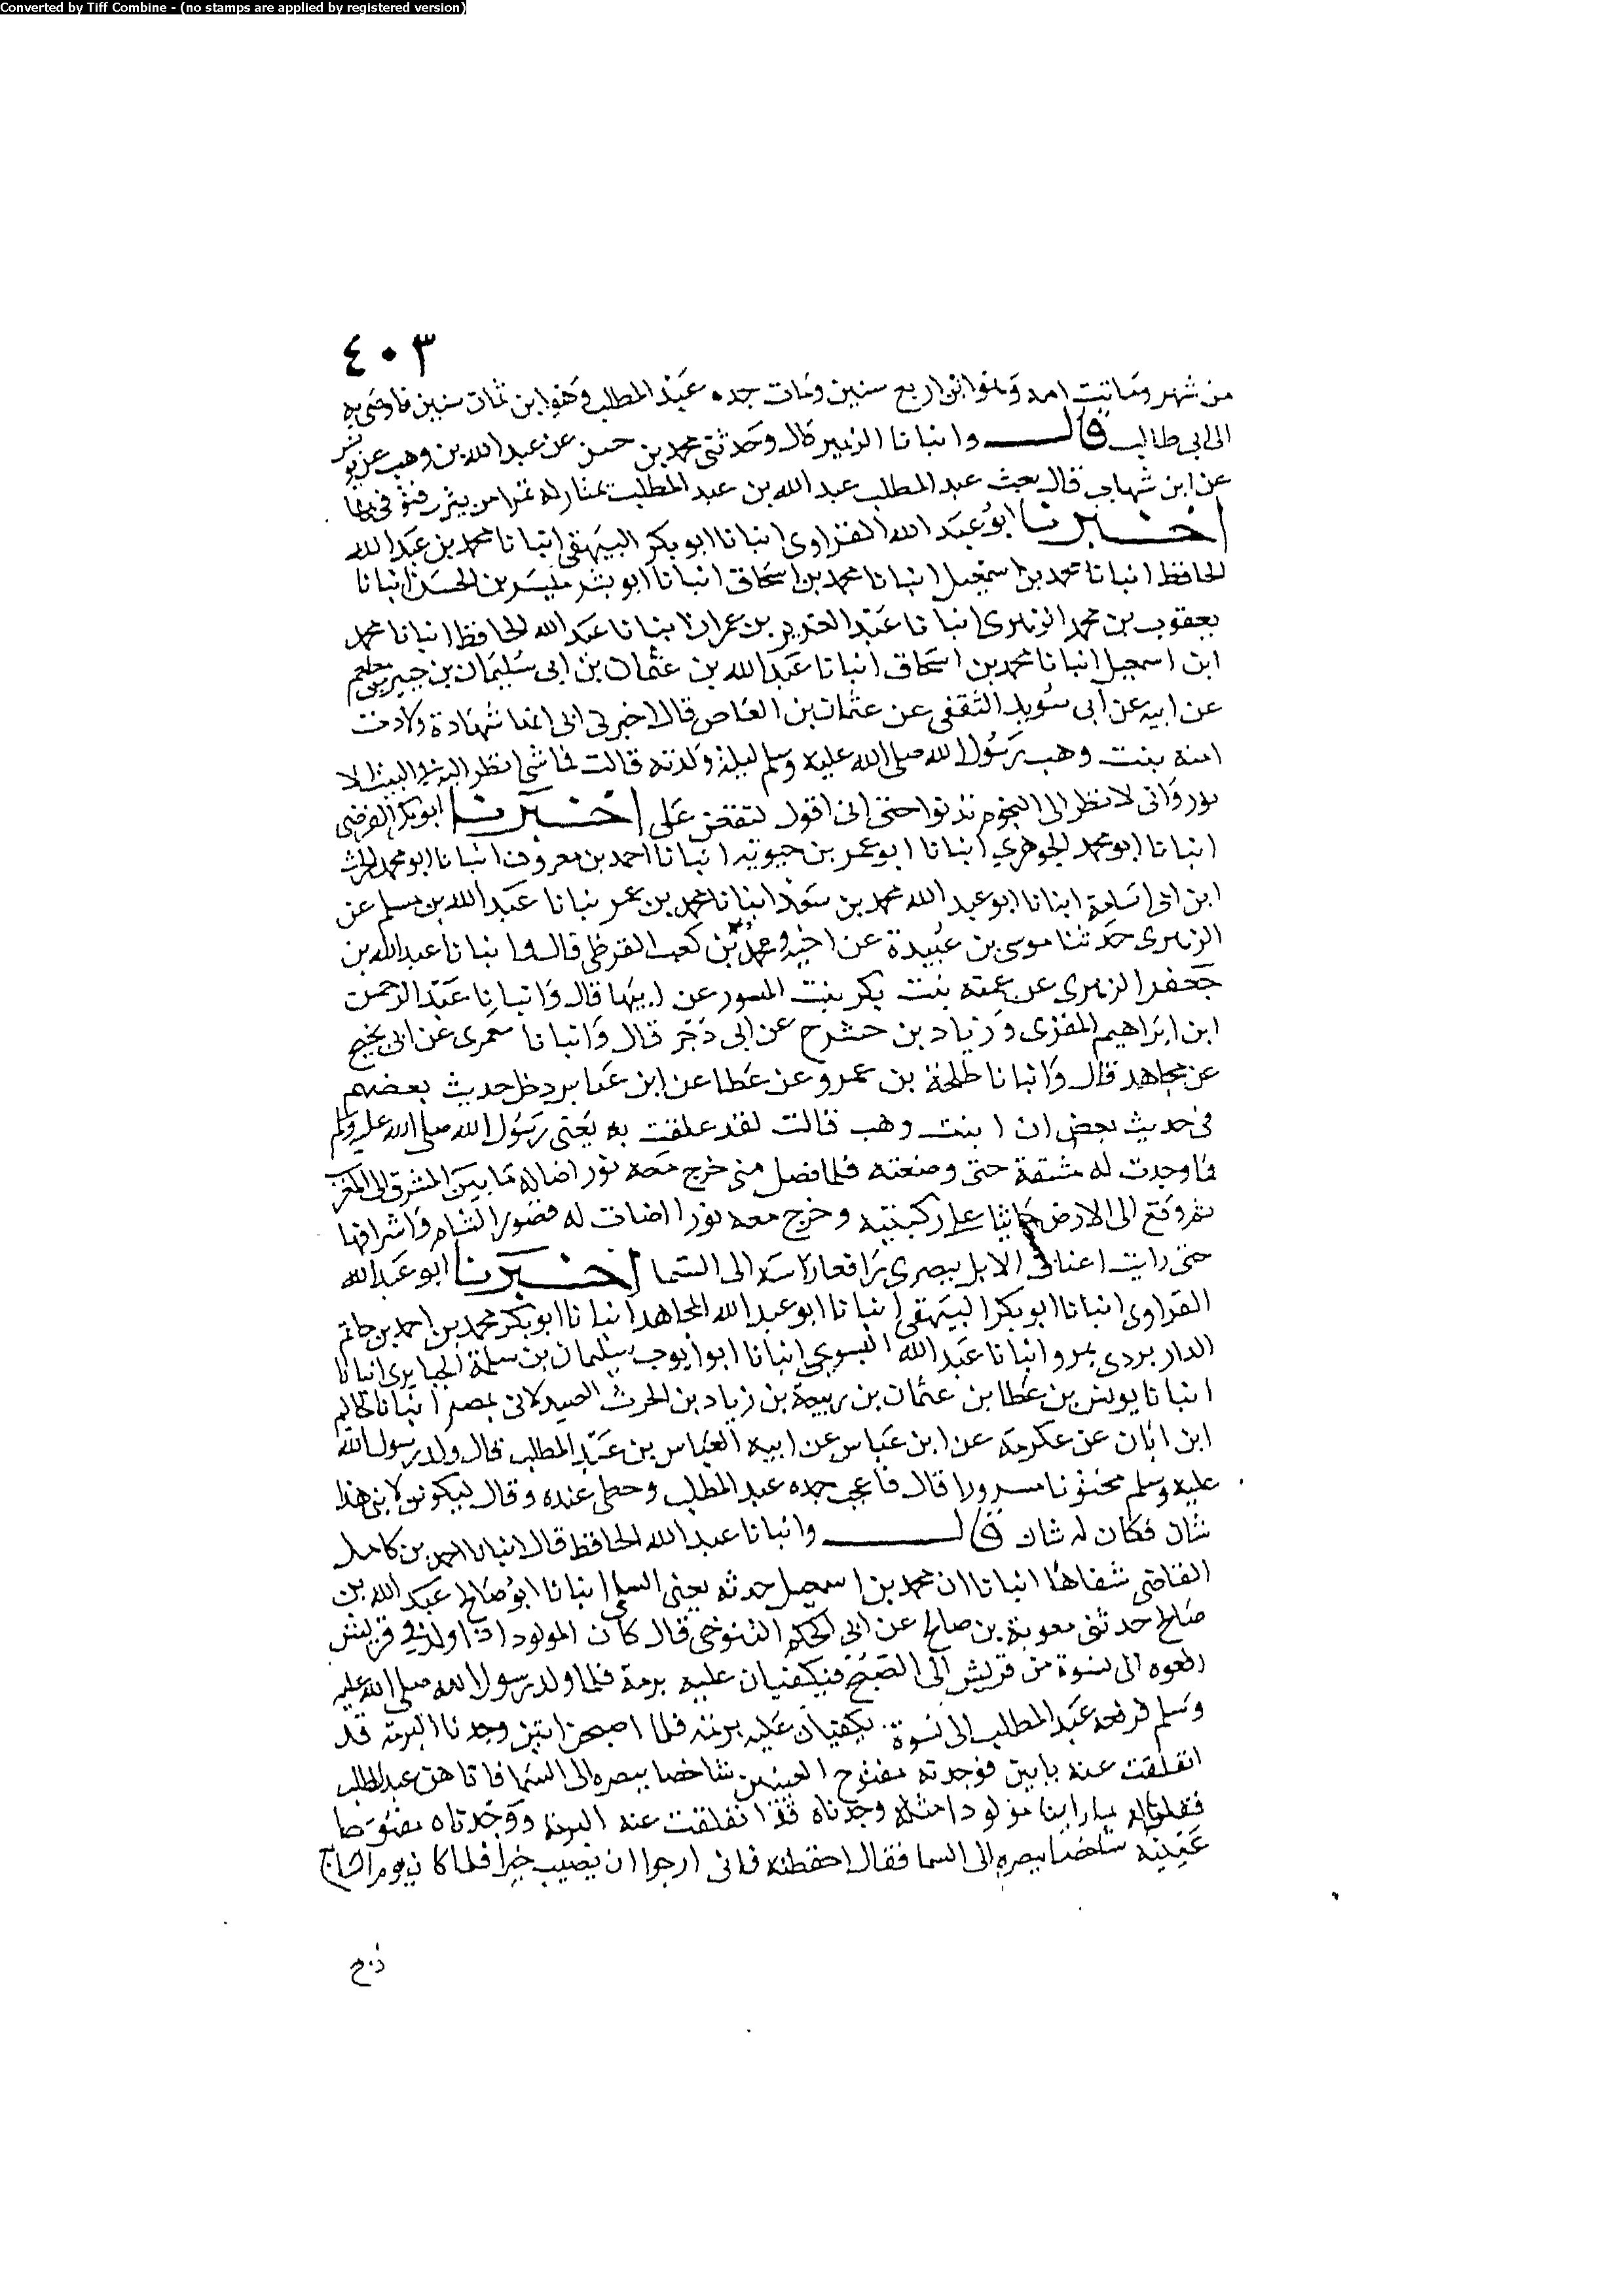 Converted by Tiff Combine - (no stamps are applied by registered version)
٤٠٣
من شهر وماتت امه وهو ابن اربع سنين ومات جده عبد المطلب وهو ابن ثمان سنين فاوصى به
الى ابى طالب قال وانبانا الزبير قال وحدثنى محمد بن حسن عن عبد الله بن وهب عن يونس
عن ابن شهاب قال بعث عبد المطلب عبد الله بن عبد المطلب يمتار له تمرا من يثرب فتوفى بها
اخبرنا ابو عبد الله الفراوى انبانا ابو بكر البيهقى انبانا محمد بن عبد الله
الحافظ انبانا محمد بن اسمعيل انبانا محمد بن اسحاق انبانا ابو بشر مبشر بن الحسن انبانا
يعقوب بن محمد الزهرى انبانا عبد العزيز بن عمران انبانا عبد الله الحافظ انبانا محمد
ابن اسمعيل انبانا محمد بن اسحاق انبانا عبد الله بن عثمان بن ابى سليمان بن جبير بن مطعم
عن ابيه عن ابى سويد الثقفى عن عثمان بن العاص قال اخبرنى امى انها شهادة ولادت
امنه بنت وهب رسول الله صلى الله عليه وسلم ليلة ولدته قالت فما شى انظر اليه فى البيت الا
نور وانى لانظر الى النجوم تدنوا حتى انى اقول لتقعن على اخبرنا ابو بكر الفرضى
انبانا ابو محمد الجوهري انبانا ابو عمر بن حيويه انبانا احمد بن معروف انبانا ابو محمد الحرث
ابن ابى اسامة انبانا ابو عبد الله محمد بن سعد انبانا محمد بن عمر نبانا عبد الله بن مسلم عن
الزهرى حدثنا موسى بن عبيدة عن اخيه ومحمد بن كعب القرظى قال وانبانا عبد الله بن
جعفر الزهرى عن عمته بنت بكر بنت المسور عن ابيها قال وانبانا عبد الرحمن
ابن ابراهيم المفزى وزياد بن حشرج عن ابى دجر قال وانبانا معمرى عن ابى نجيح
عن مجاهد قال وانبانا طلحة بن عمرو عن عطا عن ابن عباس دخل حديث بعضهم
فى حديث بعض ان ابنت وهب قالت لقد علقت به يعنى رسول الله صلى الله عليه وسلم
فما وجدت له مشقة حتى وضعته فلما فصل منى خرج معه نور اضا له ما بين المشرق الى المغرب
ثم وقع الى الارض جاثيا على ركبتيه وخرج معه نورا اضات له قصور الشام واسواقها
حتى رايت اعناق الابل ببصرى رافعا راسه الى السما اخبرنا ابو عبد الله
الفراوى انبانا ابو بكر البيهقى انبانا ابو عبد الله المجاهد انبانا ابو بكر محمد بن احمد بن حاتم
الداربردى بمرو انبانا عبد الله البسوجى انبانا ابو ايوب سليمان بن سلمة الجبايرى انبانا
انبانا يونس بن عطا بن عثمان بن ربيعة بن زياد بن الحرث الصيدلانى بمصر انبانا الحكم
ابن ابان عن عكرمة عن ابن عباس عن ابيه العباس بن عبد المطلب قال ولد رسول الله
عليه وسلم مختونا مسرورا قال فاعجب جده عبد المطلب وحظى عنده وقال ليكونن لابنى هذا
شان فكان له شان قال وانبانا عبد الله الحافظ قال انبانا احمد بن كامل
القاضى شفاها انبانا ان محمد بن اسمعيل حدثه يعنى السلمى انبانا ابو صالح عبد الله بن
صالح حدثنى معوية بن صالح عن ابى الحكم التنوخى قال كان المولود اذا ولد فى قريش
دفعوه الى نسوة من قريش الى الصبح فيكفيان عليه برمة فلما ولد رسول الله صلى الله عليه
وسلم فدفعه عبد المطلب الى نسوة يكفيان عليه برمته فلما اصبحن اتين وجدنا البرمة قد
انفلقت عنه باثنين فوجدته مفتوح العينين شاخصا ببصره الى السما فاتاهن عبد المطلب
فقلن له ما راينا مولودا مثله وجدناه قد انفلقت عنه البرمة ووجدناه مفتوحا
عينيه شاخصا ببصره الى السما فقال احفظنه فانى ارجوا ان يصيب خيرا فلما كان يوم السابع
ذبح